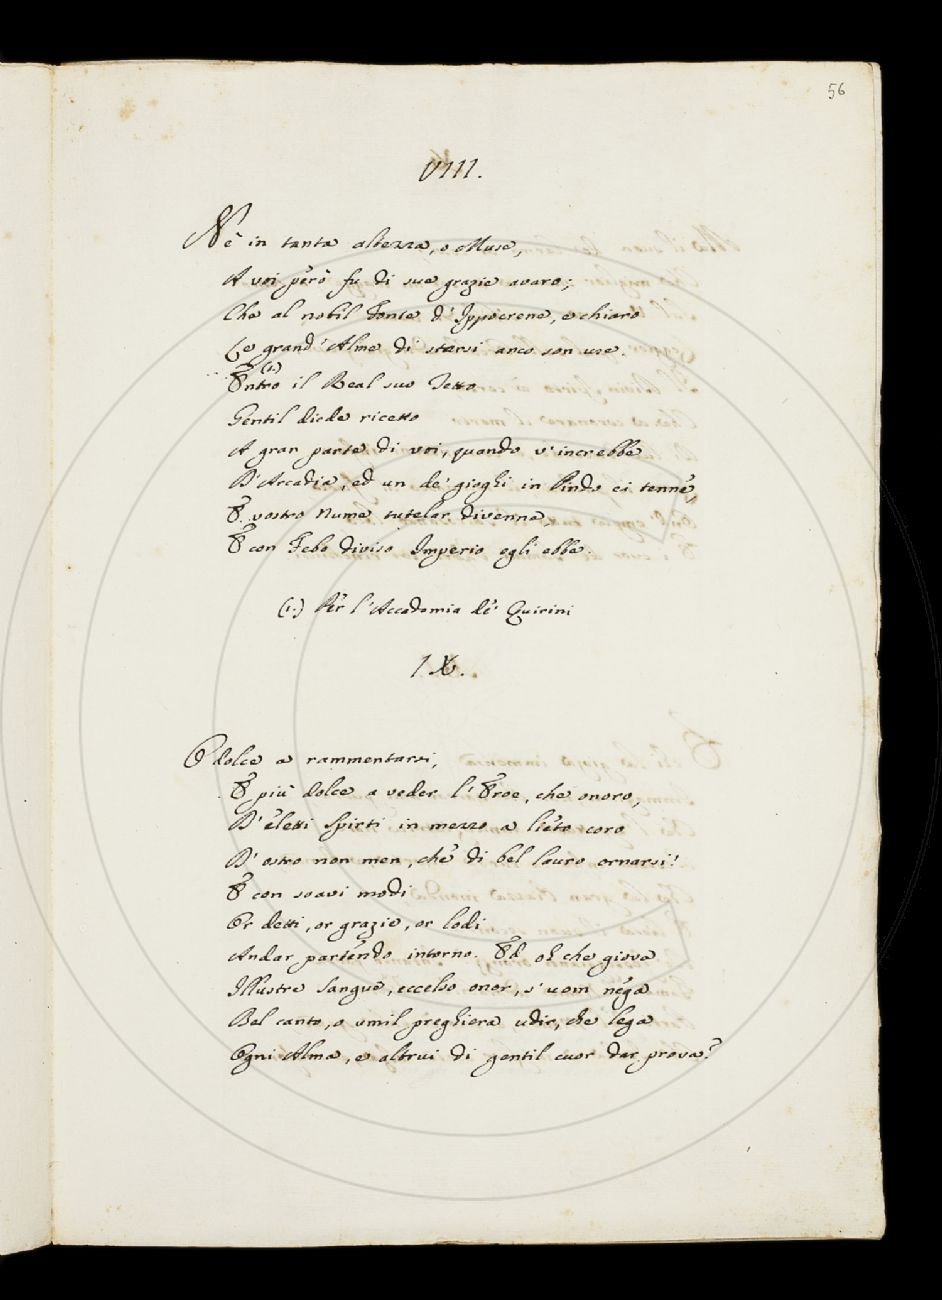 56
VIII.
Nè in tanta altezza, o Muse,
A voi però fu di sue grazie avaro;
Che al nobil Fonte d'Ippocrene, e chiaro
Le grand'Alme di starsi anco son use.
(1.)
Entro il Real suo Tetto
Gentil diede ricetto
A gran parte di voi, quando v'increbbe
D'Arcadia, ed un de' gioghi in Pindo ei tenne,
E vostro Nume tutelar divenne,
E con Febo diviso Imperio egli ebbe.
(1.) Per l'Accademia de' Quirini
IX.
O dolce a rammentarsi,
E più dolce a veder l'Eroe, che onoro,
D'eletti Spirti in mezzo a lieto coro
D'ostro non men, che di bel lauro ornarsi!
E con soavi modi
Or detti, or grazie, or lodi
Andar partendo intorno. Ed oh che giova
Illustre Sangue, eccelso onor, s'uom nega
Bel canto, o umil preghiera udir, che lega
Ogni Alma, e altrui di gentil cuor dar prova?